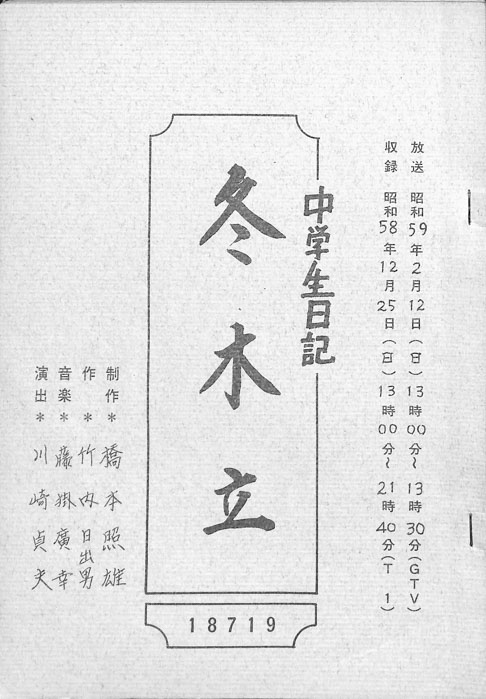 放送 昭和59年2月12日(日)13時00分〜13時30分(GTV)
収録 昭和58年12月25日(日)13時00分〜21時40分(T1)
中学生日記
冬木立
制作*橋本照雄
作*竹内日出男
音楽*藤掛廣幸
演出*川崎貞夫
18719